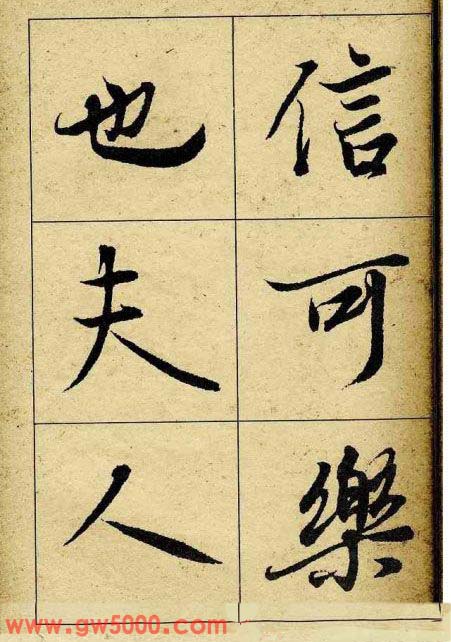 信可樂
也夫人
www.gw5000.com